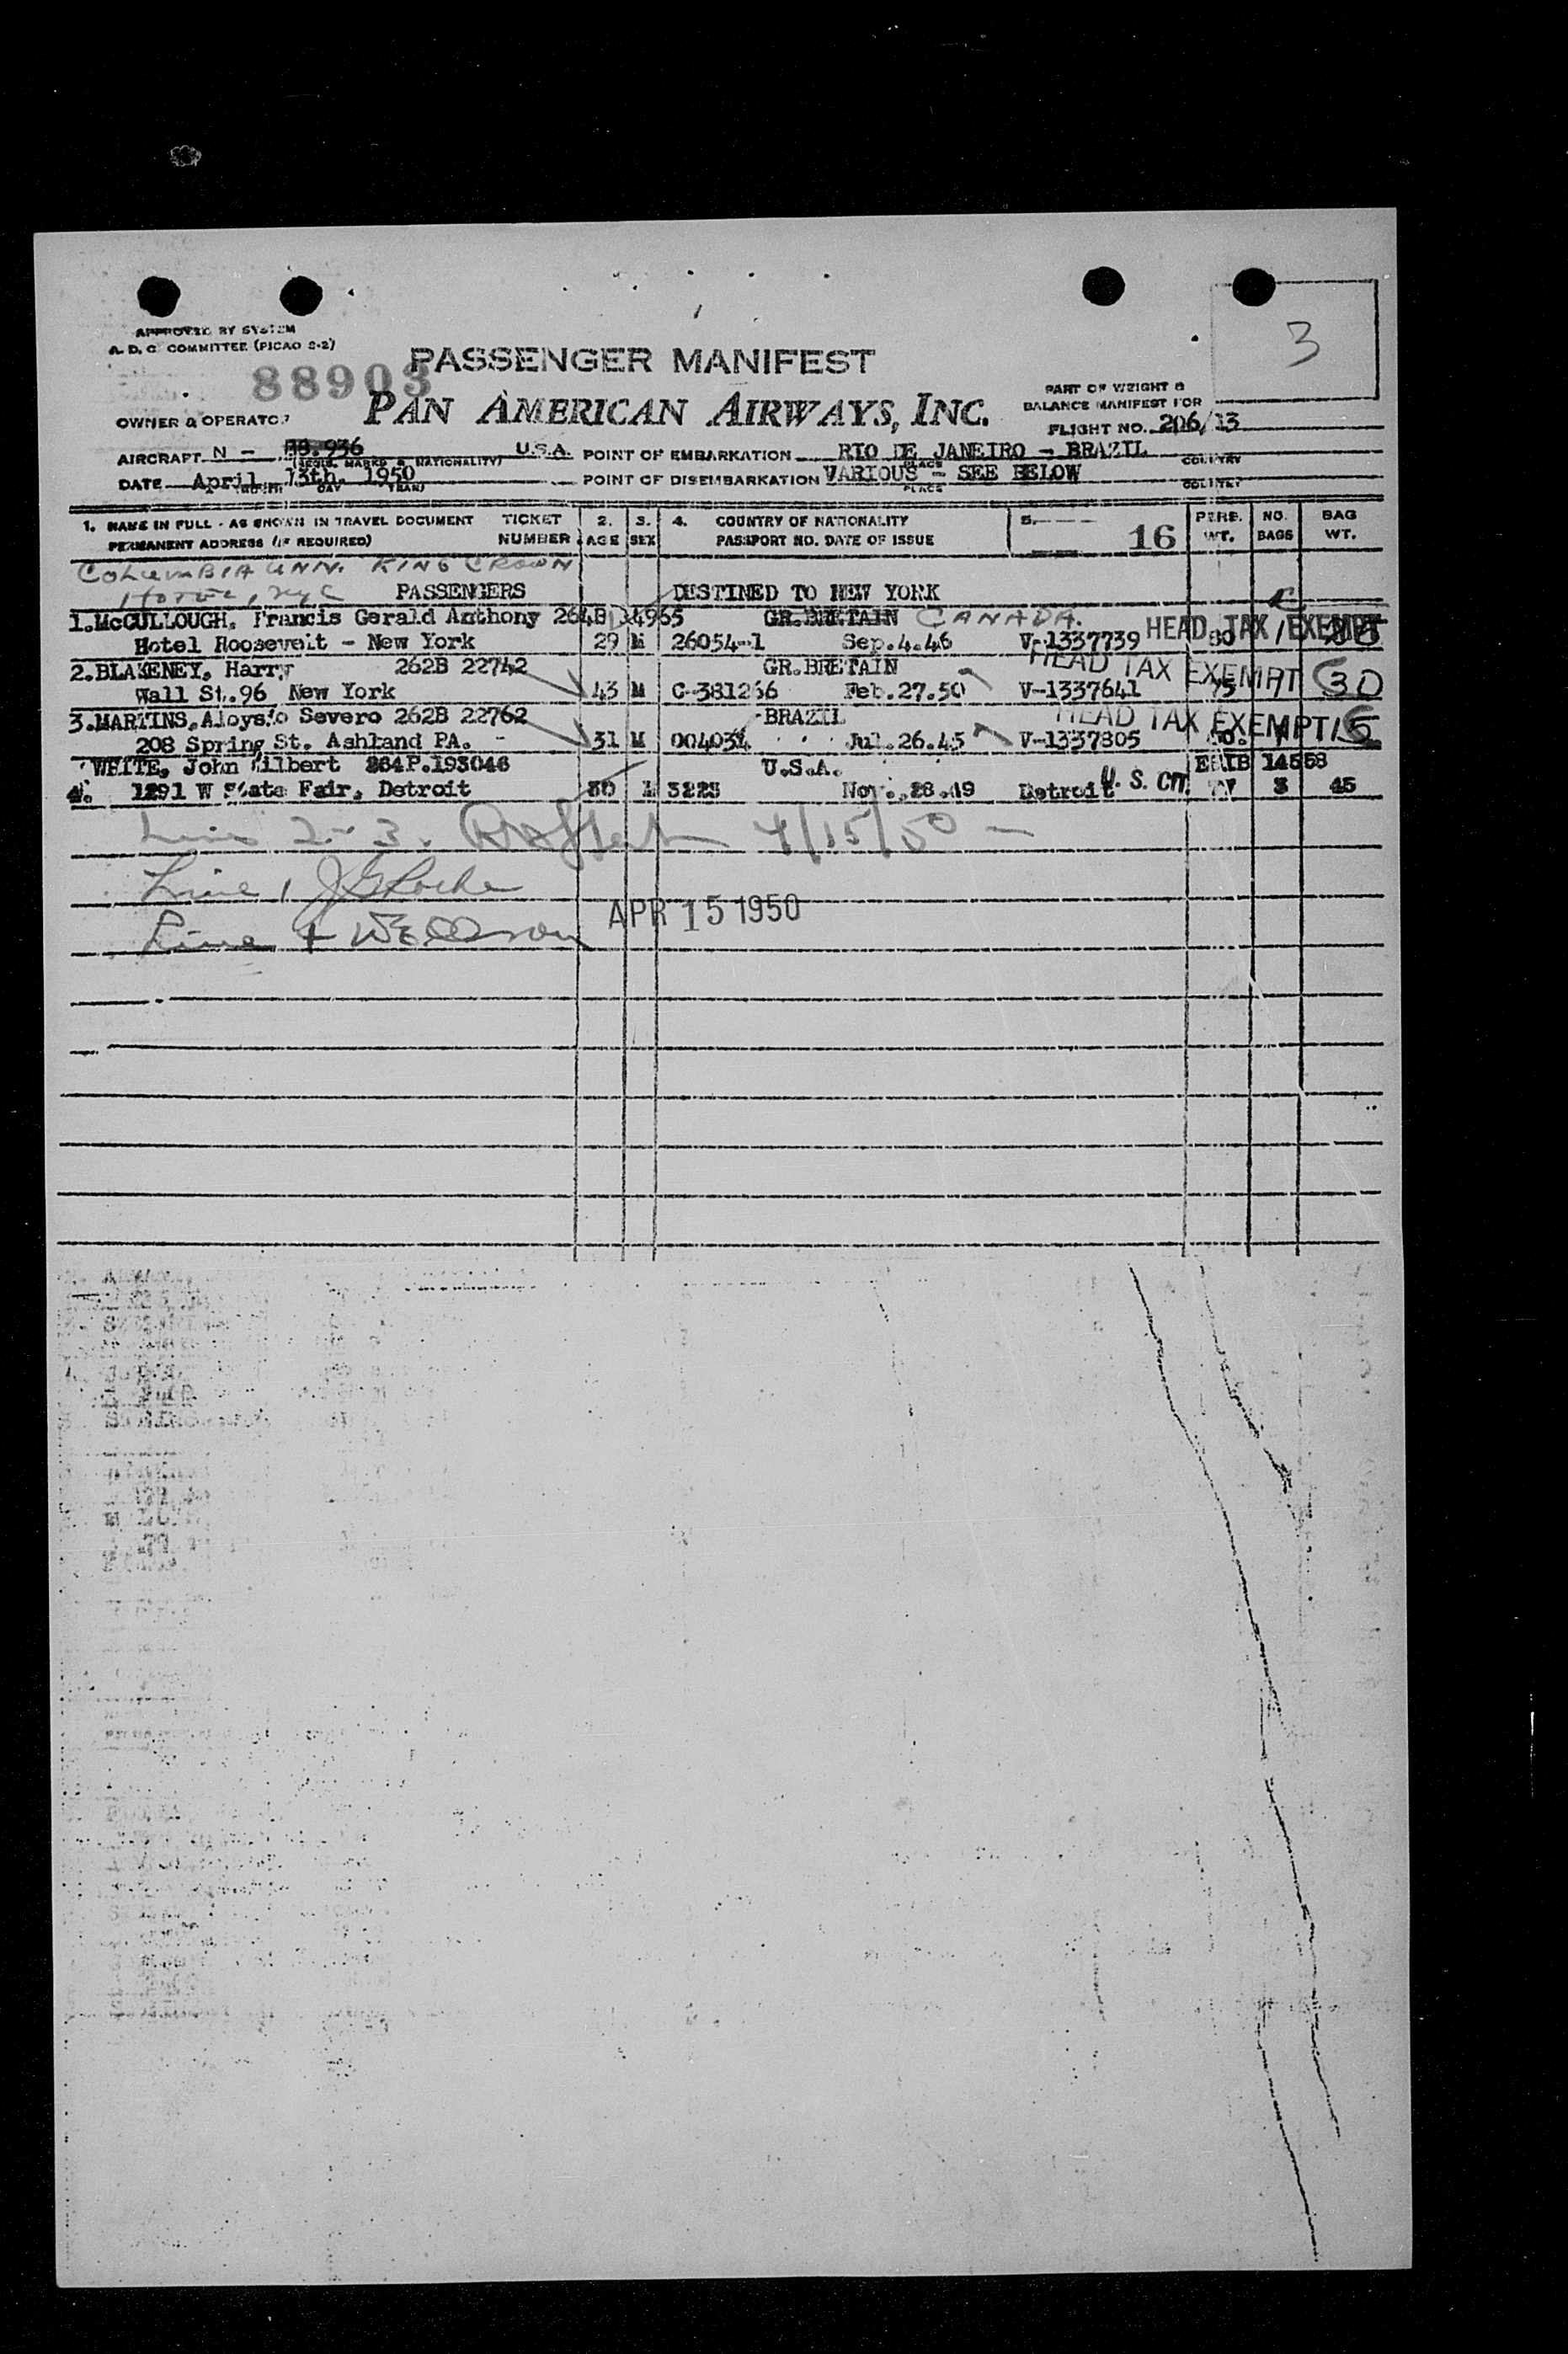 3
APPROVED BY SYSTEM
A. D. C. COMMITTEE (PICAO 2-2)
88903
PASSENGER MANIFEST
PAN AMERICAN AIRWAYS, INC.
OWNER & OPERATOR
PART OF WEIGHT &
BALANCE MANIFEST FOR
FLIGHT NO. 206/13
AIRCRAFT N - U.S.A. POINT OF EMBARKATION RIO DE JANEIRO - BRAZIL
(REGIS. MARKS & NATIONALITY) PLACE COUNTRY
DATE April 13th. 1950 POINT OF DISEMBARKATION VARIOUS - SEE BELOW
MONTH DAY YEAR PLACE COUNTRY
1. NAME IN FULL - AS SHOWN IN TRAVEL DOCUMENT TICKET 2. 3. 4. COUNTRY OF NATIONALITY 5. 16 PERS. NO. BAG
PERMANENT ADDRESS (IF REQUIRED) NUMBER AGE SEX PASSPORT NO. DATE OF ISSUE WT. BAGS WT.
COLUMBIA UNN. KING CROWN
HOTEL, NYC PASSENGERS DESTINED TO NEW YORK
1. McCULLOUGH, Francis Gerald Anthony 264B 34965 GR.BRETAIN CANADA.
Hotel Roosevelt - New York 29 M 26054-1 Sep.4.46 V-1337739 HEAD TAX EXEMPT
2. BLAKENEY, Harry 262B 22742 GR.BRETAIN HEAD TAX EXEMPT
Wall St.96 New York 43 M C-381266 Feb.27.50 V-1337641 75 1 30
3. MARTINS, Aloysio Severo 262B 22762 BRAZIL HEAD TAX EXEMPT
208 Spring St. Ashland PA. 31 M 004034 Jul.26.45 V-1337805
WHITE, John Wilbert 264P.193046 U.S.A. 14558
4. 1291 W State Fair, Detroit 30 M 3223 Nov.28.49 Detroit U. S. CIT. 3 45
Line 2-3. 4/15/50
Line 1
APR 15 1950
Line 4